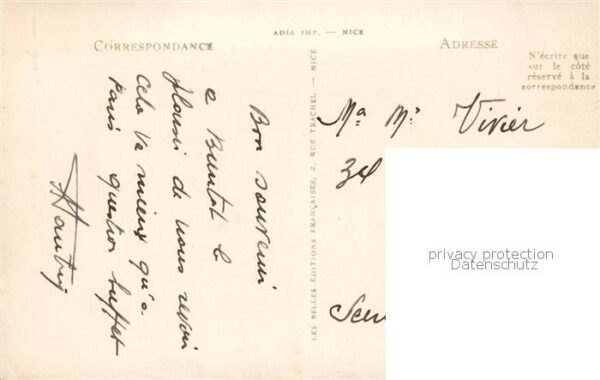 ADIA IMP. — NICE
CORRESPONDANCE
ADRESSE
N'écrire que
sur le côté
réservé à la
correspondance
LES BELLES ÉDITIONS FRANÇAISES, 2, RUE TRACHEL — NICE
Bon souvenir
a Bientot le
plaisir de vous revoir
cela va mieux qu'a
Paris question buffet
Ma Mr Vivier
34
privacy protection
Datenschutz